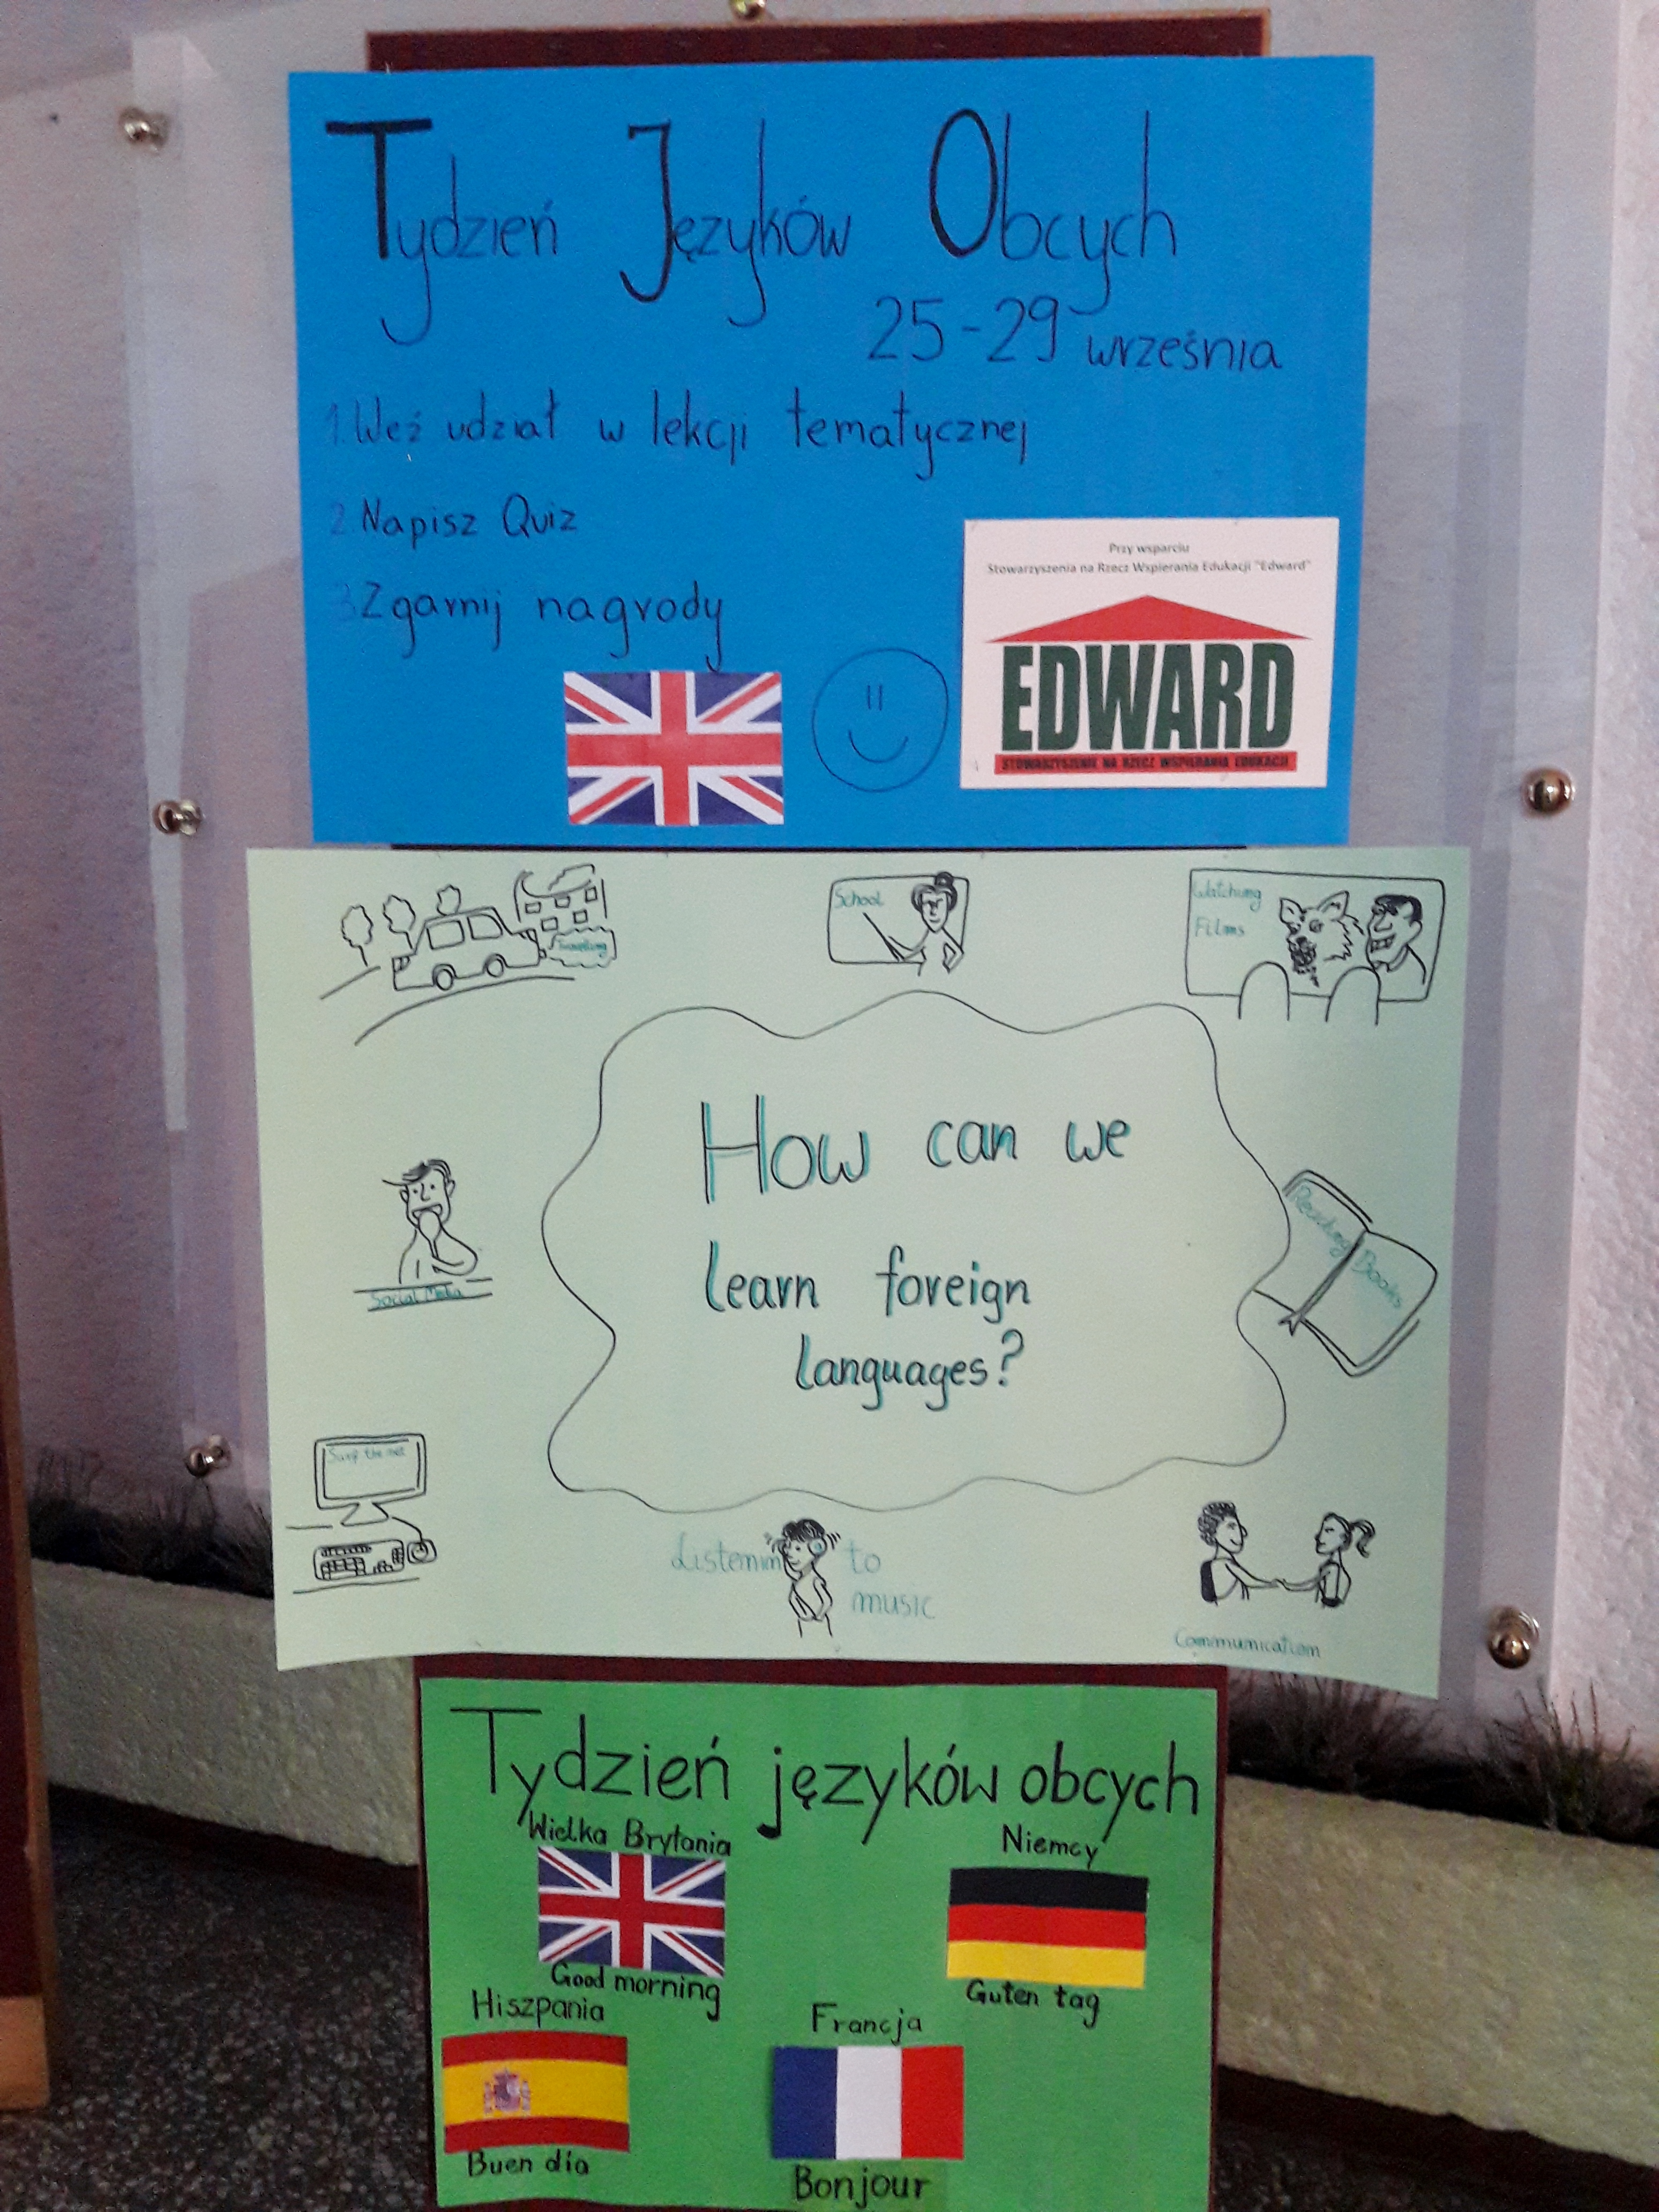 Tydzień Języków Obcych
25-29 września
1. Weź udział w lekcji tematycznej
2. Napisz Quiz
3. Zgarnij nagrody
Przy wsparciu
Stowarzyszenia na Rzecz Wspierania Edukacji "Edward"
EDWARD
STOWARZYSZENIE NA RZECZ WSPIERANIA EDUKACJI
Travelling
School
Watching
Films
How can we
learn foreign
languages?
Reading Books
Social Media
Surf the net
Listening to
music
Communication
Tydzień języków obcych
Wielka Brytania
Niemcy
Good morning
Guten tag
Hiszpania
Francja
Buen día
Bonjour